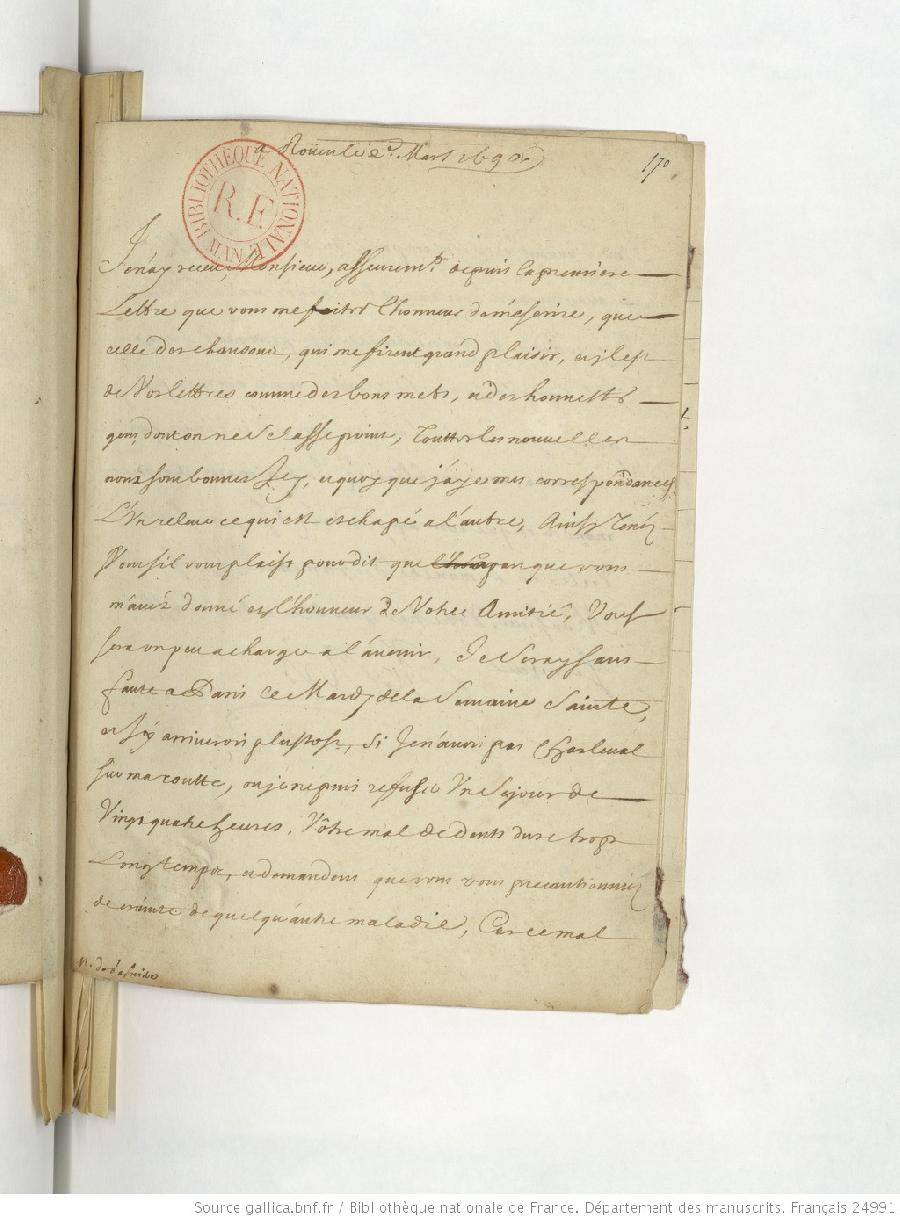 a Rouen le 2e. Mars 1690.
170
BIBLIOTHEQUE NATIONALE
R.F
MAN
Je n'ay receu, Monsieur, asseuremt. depuis la premiere
Lettre que vous me fistes l'honneur de m'escrire, que
celle des chansons, qui me firent grand plaisir, et il est
de Vos lettres comme des bons mets, et des honnestes
gens, dont on ne se lasse point, Touttes les nouvelles
nous sont bonnes Icy, et quoy que j'aye mes correspondances
L'Un releve ce qui est eschapé a l'autre, Ainsy Tenéz
Vous s'il vous plaist pour dit que que vous
m'avéz donné l'honneur de Vostre Amitié, Vous
sera un peu a charge a l'avenir, Je seray sans
faute a Paris Le Mardy de la Semaine Sainte,
et j'y arriverois plustost, Si Je n'avois pas Charleval
sur ma routte, ou je ne puis refuser Un Sejour de
Vingt quatre heures, Vôtre mal de dents dure trop
Longtemps, et demandent que vous vous precautionniéz
de crainte de quelqu'autre maladie, Car ce mal
Source gallica.bnf.fr / Bibliothèque nationale de France. Département des manuscrits. Français 24991